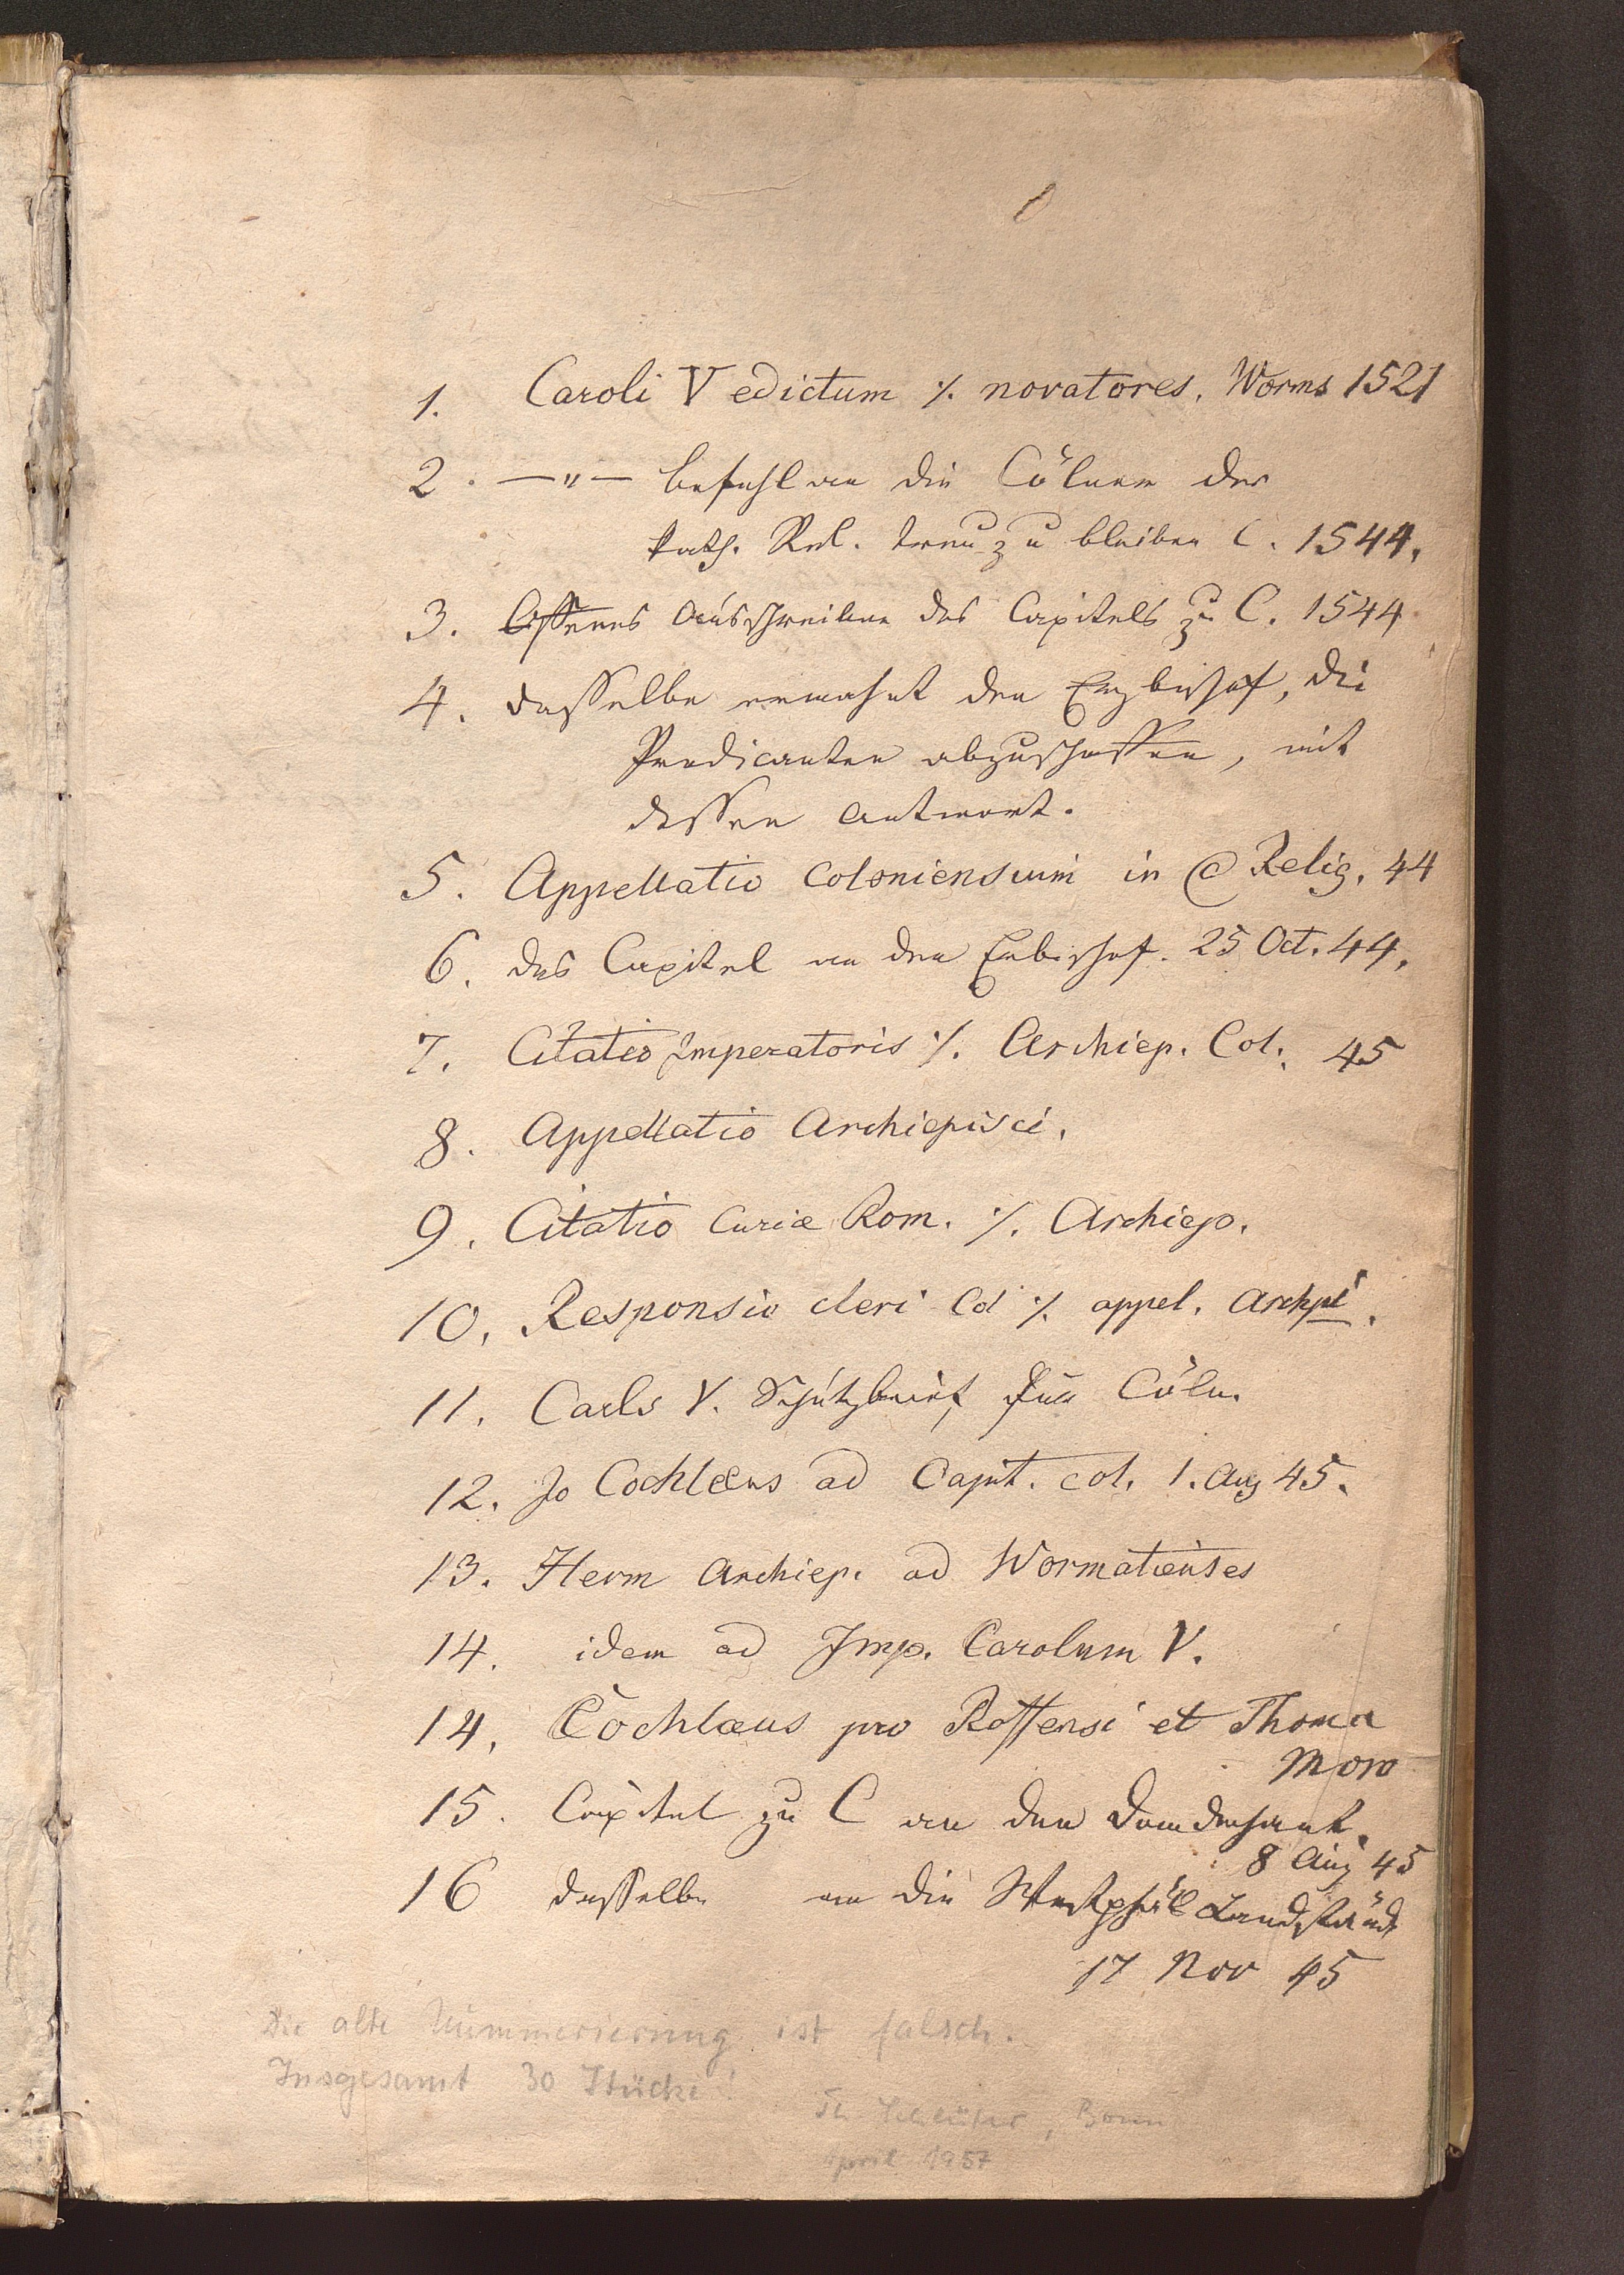 1. Caroli V edictum ./. novatores. Worms 1521
2. —"— befehl an die Cölner der
kath. Rel. treu zu bleiben C. 1544.
3. Offenes Ausschreiben des Capitels zu C. 1544
4. dasselbe ermahnt den Erzbischof, die
Predicanten abzuschaffen, mit
dessen Antwort.
5. Appellatio Coloniensium in @ Relig. 44
6. das Capitel an den Erbischof. 25 Oct. 44.
7. Citatio Imperatoris ./. Archiep. Col. 45
8. Appellatio Archiepisci.
9. Citatio Curiæ Rom. ./. Archiep.
10. Responsio cleri Col ./. appel. Archpi.
11. Carls V. Schutzbrief für Cöln.
12. Jo Cochlæus ad Capit. col. 1. Aug 45.
13. Herm Archiep. ad Wormatienses
14. idem ad Imp. Carolum V.
14. Cochlæus pro Roffensi et Thoma
Moro
15. Capitel zu C an den Domdechant.
8 Aug 45
16 dasselbe an die Westphäl Landständ
17 Nov 45
Die alte Nummerierung ist falsch.
Insgesamt 30 Stücke!
Th. Schlüter, Bonn
April 1957